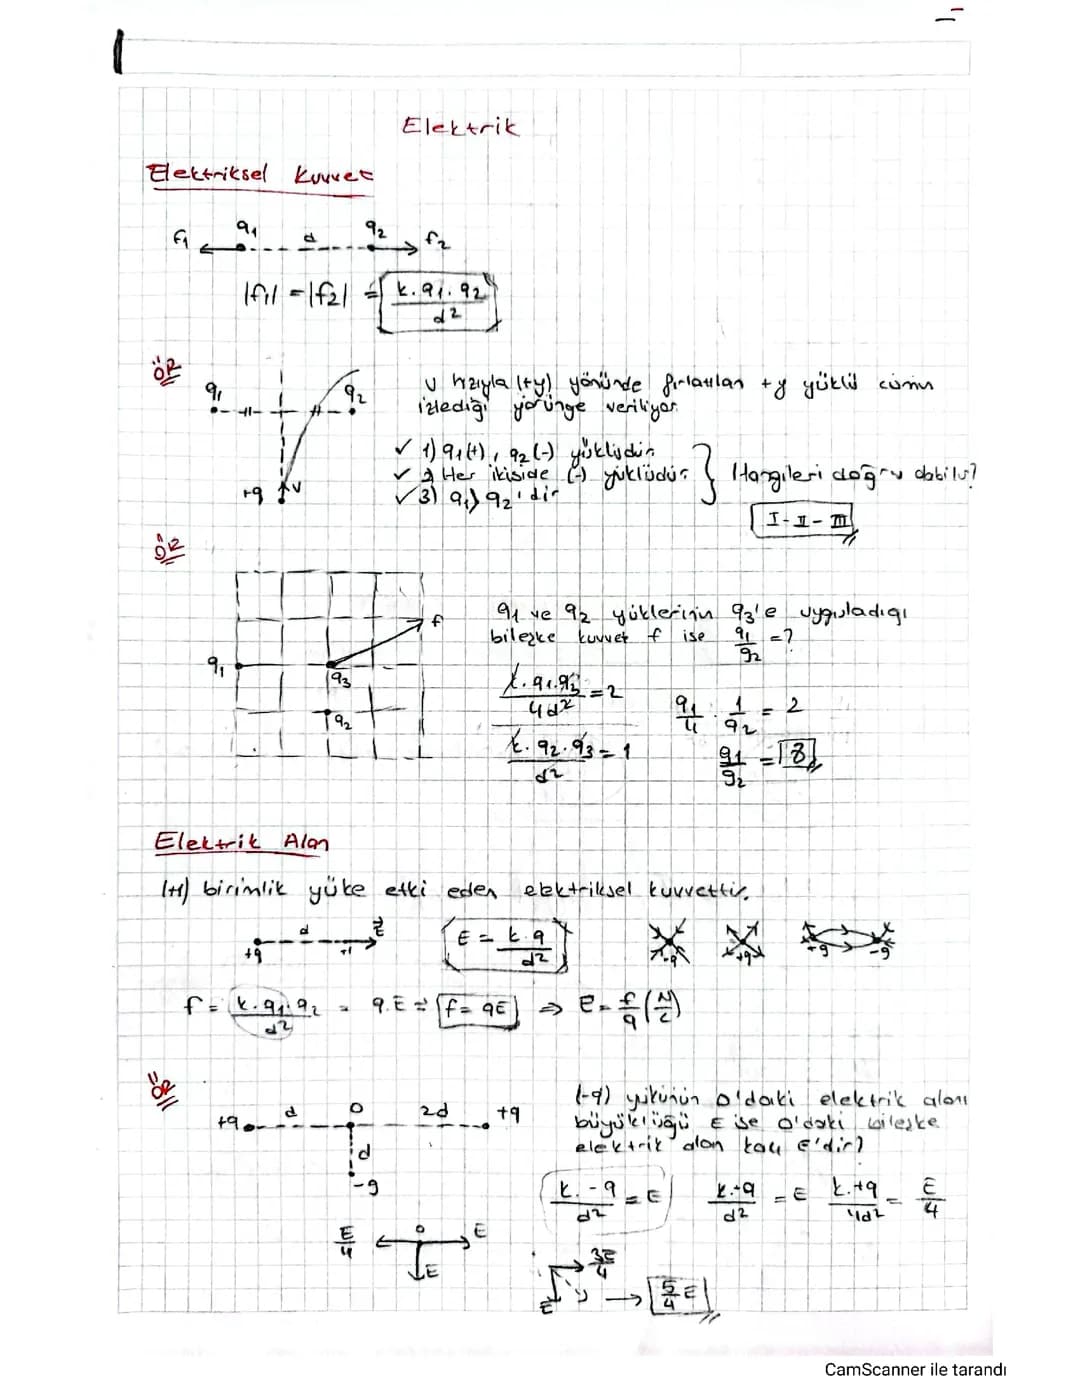 Elektrik
Elektriksel Kuvvet
f1 q1 d q2 f2
|f1| = |f2| = k.q1.q2 / d²
ÖR
q1 q2
+q V
v hızıyla (+y) yönünde fırlatılan +q yüklü cismin
izlediği yörünge veriliyor.
✓ 1) q1(+), q2(-) yüklüdür
✓ 2) Her ikiside (-) yüklüdür
✓ 3) q1 > q2'dir
Hangileri doğru olabilir?
I - II - III
ÖR
f
q1
q3
q2
q1 ve q2 yüklerinin q3'e uyguladığı
bileşke kuvvet f ise q1/q2 = ?
k.q1.q3 / 4d² = 2
k.q2.q3 / d² = 1
q1/4 . 1/q2 = 2
q1/q2 = 8
Elektrik Alan
(+1) birimlik yüke etki eden elektriksel kuvvettir.
+q d +1 E
E = k.q / d²
-q +q +q -q
f = k.q1.q2 / d² = q.E = f = qE ⇒ E = f/q (N/C)
ÖR
+q d O 2d +q
d
-q
(-q) yükünün O'daki elektrik alanı
büyüklüğü E ise O'daki bileşke
elektrik alan kaç E'dir?
k.-q / d² = E k.+q / d² = E k.+q / 4d² = E/4
E/4 O E
E
3E/4
E → 5/4 E
CamScanner ile tarandı